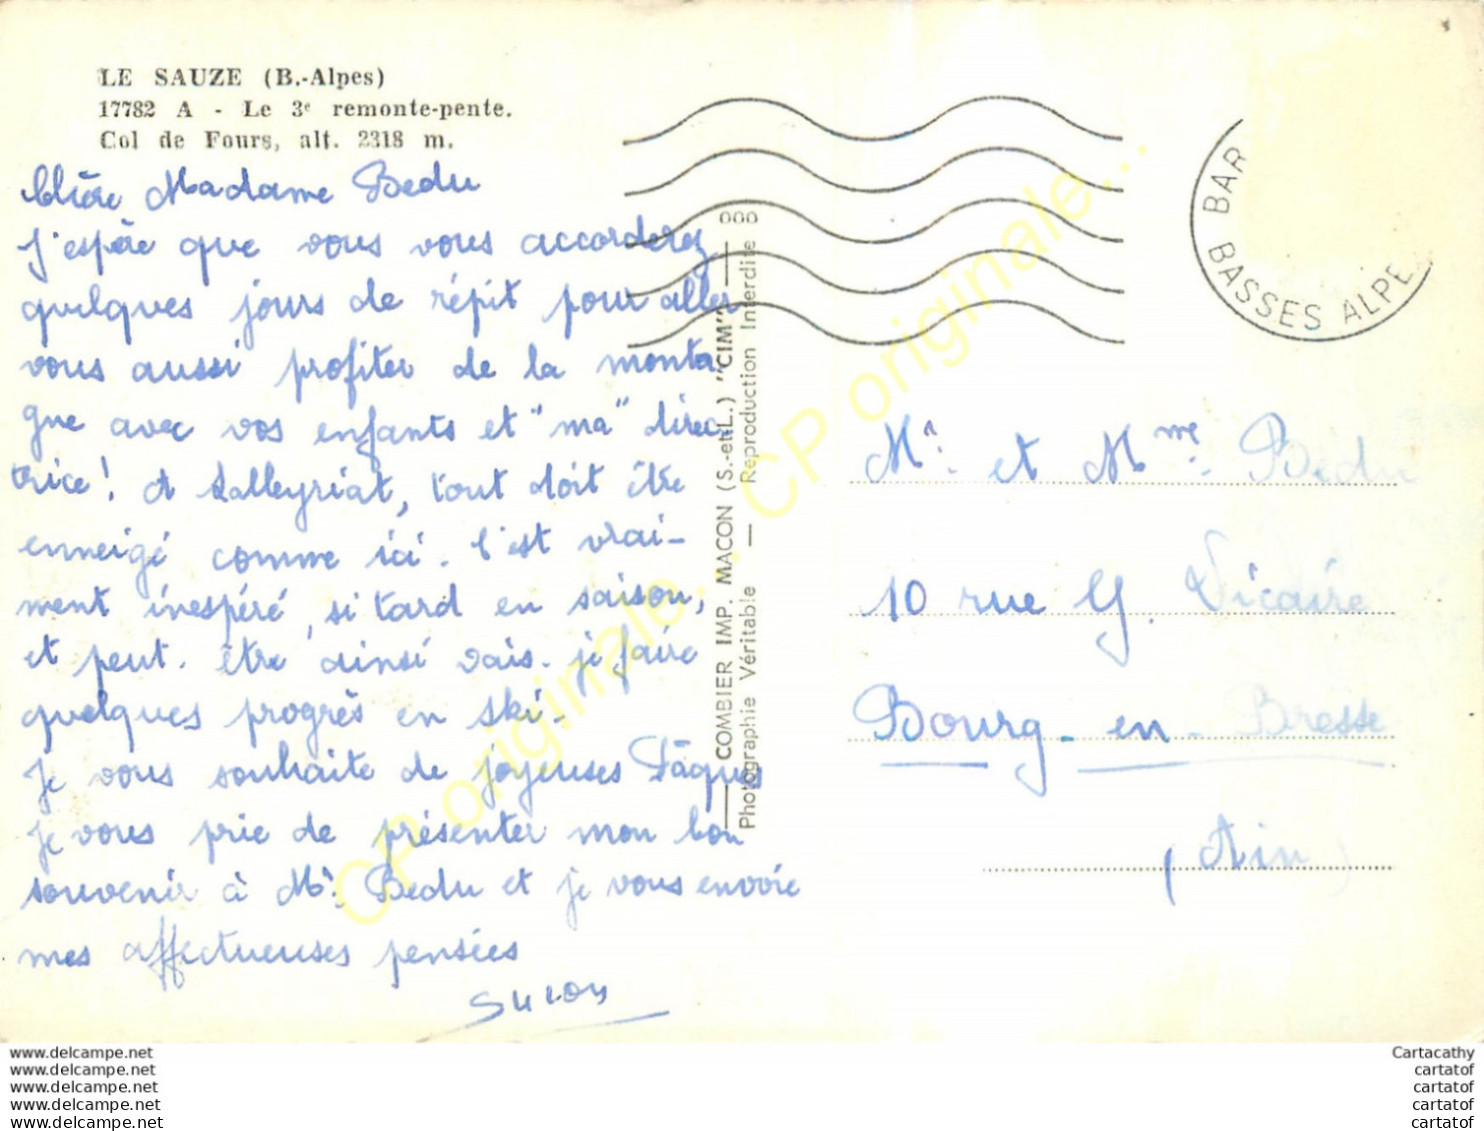 LE SAUZE (B.-Alpes)
17782 A - Le 3e remonte-pente.
Col de Fours, alt. 2318 m.
Chère Madame Bedu
J'espère que vous vous accorderez
quelques jours de répit pour aller
vous aussi profiter de la monta
gne avec vos enfants et "ma" direc-
trice! A Lalleyriat, tout doit être
enneigé comme ici. C'est vrai-
ment inespéré, si tard en saison,
et peut-être ainsi vais-je faire
quelques progrès en ski.
Je vous souhaite de joyeuses Pâques
Je vous prie de présenter mon bon
souvenir à Mr. Bedu et je vous envoie
mes affectueuses pensées
Suzon
COMBIER IMP. MACON (S.-et-L.) "CIM"
Photographie Véritable — Reproduction Interdite
000
BAR
BASSES ALPE
Mr. et Mme. Bedu
10 rue G. Vicaire
Bourg-en-Bresse
(Ain)
CP originale... CP originale...
www.delcampe.net
www.delcampe.net
www.delcampe.net
www.delcampe.net
www.delcampe.net
Cartacathy
cartatof
cartatof
cartatof
cartatof